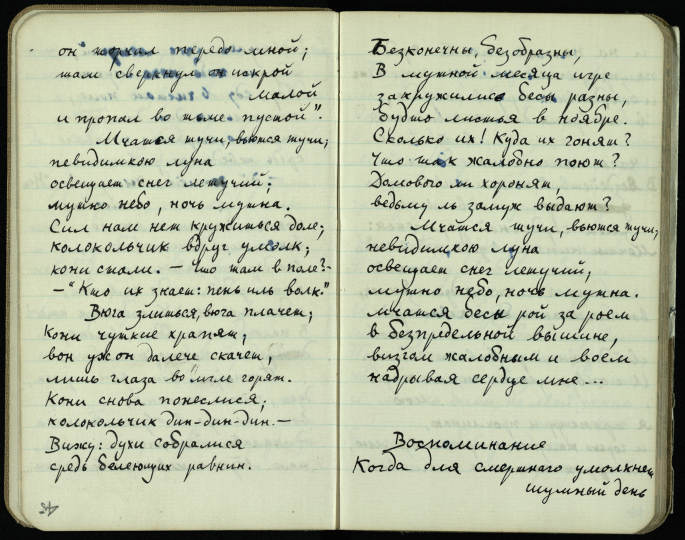 он торчал передо мной;
там сверкнул он искрой
малой
и пропал во тьме пустой".
Мчатся тучи, вьются тучи;
невидимкою луна
освещает снег летучий;
мутно небо, ночь мутна.
Сил нам нет кружиться доле;
колокольчик вдруг умолк;
кони стали. – что там в поле? –
– "Кто их знает: пень иль волк."
Вюга злиться, вюга плачет;
Кони чуткие храпят;
вон уж он далече скачет;
лишь глаза во мгле горят.
Кони снова понеслися;
колокольчик дин-дин-дин. –
Вижу: духи собралися
средь белеющих равнин.
Безконечны, безобразны,
В мутной месяца игре
закружились бесы разны,
будто листья в ноябре.
Сколько их! Куда их гонят?
Что так жалобно поют?
Домового ли хоронят,
ведьму ль замуж выдают?
Мчатся тучи, вьются тучи;
невидимкою луна
освещает снег летучий;
мутно небо, ночь мутна.
мчатся бесы рой за роем
в безпредельной вышине,
визгом жалобным и воем
надрывая сердце мне...
Воспоминание
Когда для смертнаго умолкнет
шумный день